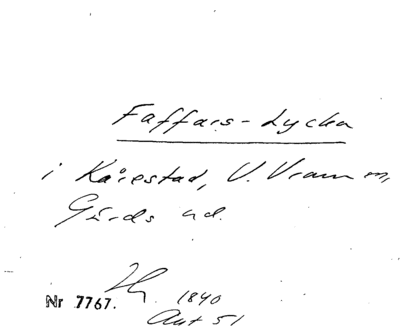 Faffars-Lycka
i Kårestad, V. Vram sn,
Gärds hd.
1840
Nr 7767.
Aut 51